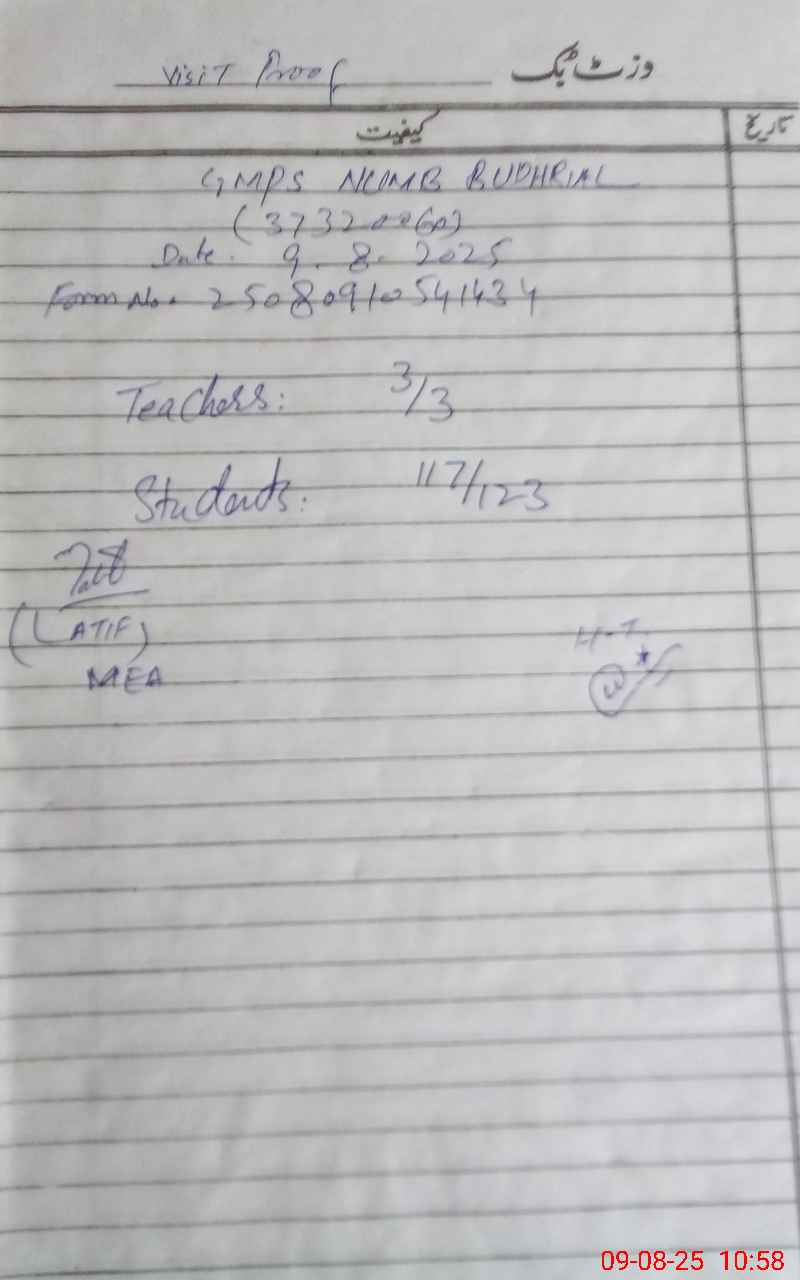 Visit Proof وزٹ بک
کیفیت تاریخ
GMPS NUMB BUDHRIAL
(37320060)
Date. 9.8.2025
Form No. 25080910541434
Teachers: 3/3
Students: 117/123
(LATIF)
MEA
H.T.
09-08-25 10:58